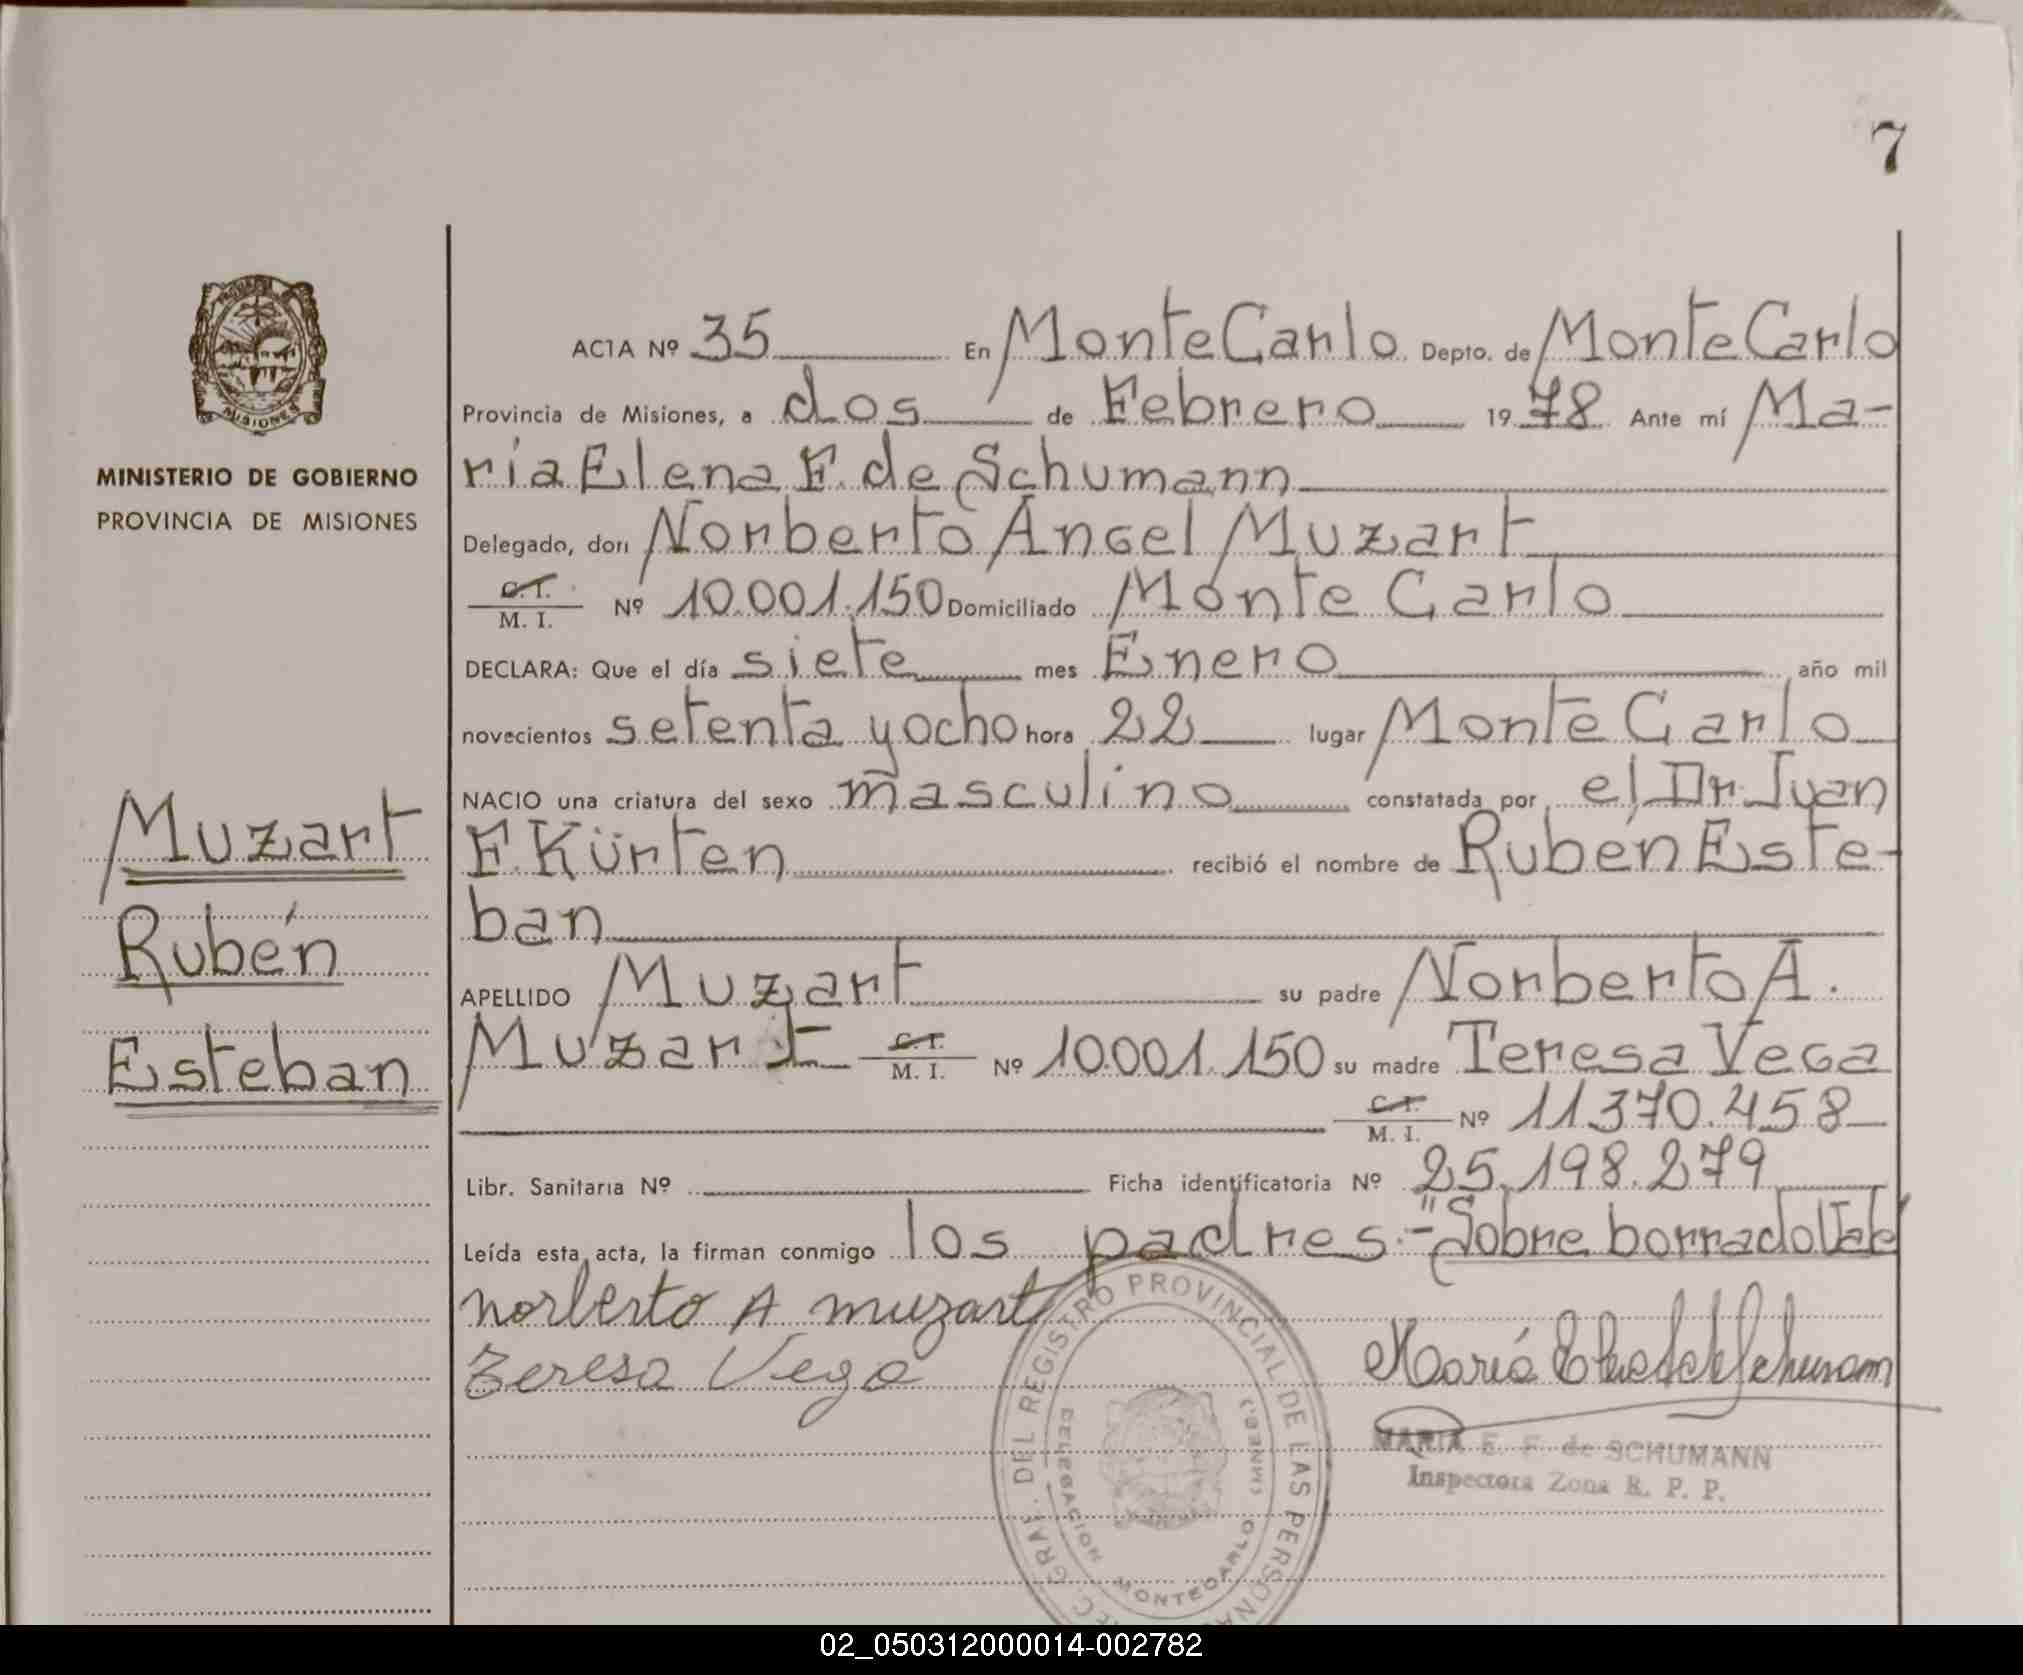 7
MINISTERIO DE GOBIERNO
PROVINCIA DE MISIONES
MISIONES
Muzart
Rubén
Esteban
ACTA Nº 35 En Monte Carlo Depto. de Monte Carlo
Provincia de Misiones, a dos de Febrero 1978 Ante mí Ma-
ría Elena F. de Schumann
Delegado, don Norberto Angel Muzart
C.I. / M. I. Nº 10.001.150 Domiciliado Monte Carlo
DECLARA: Que el día siete mes Enero año mil
novecientos setenta y ocho hora 22 lugar Monte Carlo
NACIO una criatura del sexo masculino constatada por el Dr. Juan
F. Kürten recibió el nombre de Rubén Este-
ban
APELLIDO Muzart su padre Norberto A.
Muzart C.I. / M. I. Nº 10.001.150 su madre Teresa Vega
C.I. / M. I. Nº 11.370.458
Libr. Sanitaria Nº Ficha identificatoria Nº 25.198.279
Leída esta acta, la firman conmigo los padres.- "Sobre borrado Vale
norberto A muzart
Teresa Vega
MARIA E. F. de SCHUMANN
Inspectora Zona R. P. P.
GRAL. DEL REGISTRO PROVINCIAL DE LAS PERSONAS
DELEGACION MONTECARLO (MNES.)
02_050312000014-002782